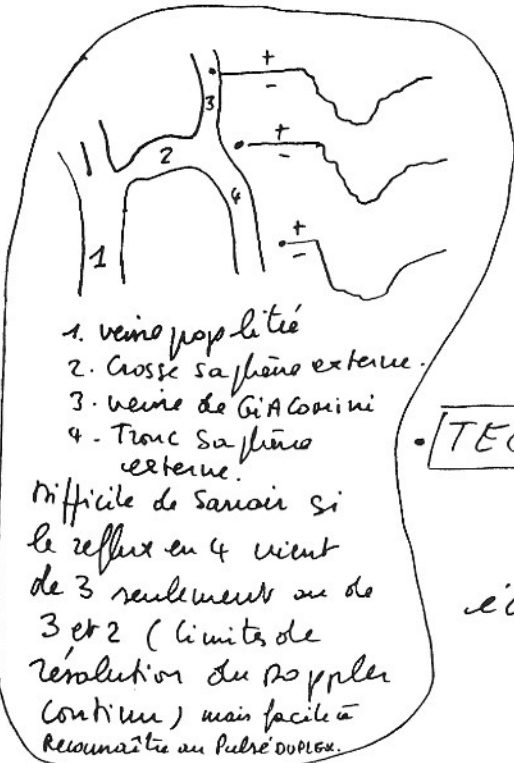 +
-
3
+
2
-
4
+
1
-
1. veine poplitée
2. Crosse saphène externe.
3. veine de GIACOMINI
4 - Tronc saphène
externe.
Difficile de savoir si
le reflux en 4 vient
de 3 seulement ou de
3 et 2 (limites de
résolution du Doppler
continu) mais facile à
Reconnaître au Pulsé DUPLEX.
• TEC